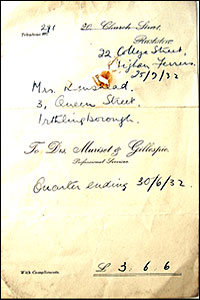 291 20 Church Street,
Telephone Rushden
22 College Street,
Higham Ferrers
25/9/32
Mrs.
3, Queen Street.
Irthlingborough.
To Drs Muriset & Gillespie.
Professional Services
Quarter ending 30/6/32.
With Compliments £ 3. 6. 6